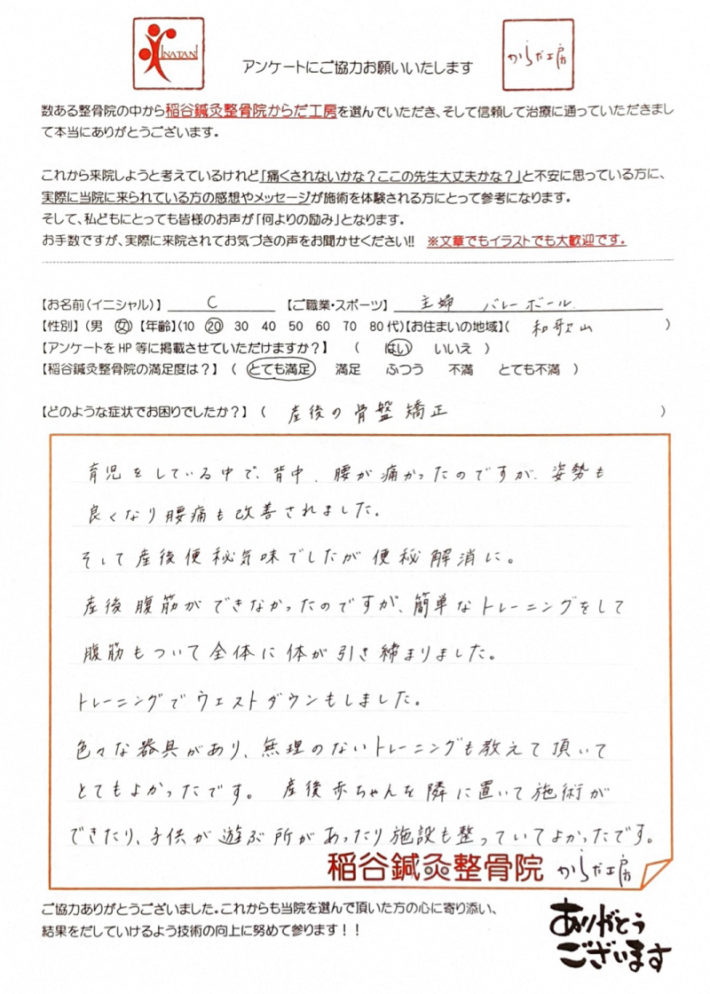 INATANI
からだ工房
アンケートにご協力お願いいたします
数ある整骨院の中から稲谷鍼灸整骨院からだ工房を選んでいただき、そして信頼して治療に通っていただきまし
て本当にありがとうございます。
これから来院しようと考えているけれど「痛くされないかな？ここの先生大丈夫かな？」と不安に思っている方に、
実際に当院に来られている方の感想やメッセージが施術を体験される方にとって参考になります。
そして、私どもにとっても皆様のお声が「何よりの励み」となります。
お手数ですが、実際に来院されてお気づきの声をお聞かせください!! ※文章でもイラストでも大歓迎です。
【お名前(イニシャル)】 C 【ご職業・スポーツ】 主婦 バレーボール
【性別】(男 女) 【年齢】(10 20 30 40 50 60 70 80代)【お住まいの地域】( 和歌山 )
【アンケートをHP等に掲載させていただけますか？】 ( はい いいえ )
【稲谷鍼灸整骨院の満足度は？】 ( とても満足 満足 ふつう 不満 とても不満 )
【どのような症状でお困りでしたか？】 ( 産後の骨盤矯正 )
育児をしている中で、背中、腰が痛かったのですが、姿勢も
良くなり腰痛も改善されました。
そして産後便秘気味でしたが便秘解消に。
産後腹筋ができなかったのですが、簡単なトレーニングをして
腹筋もついて全体に体が引き締まりました。
トレーニングでウエストダウンもしました。
色々な器具があり、無理のないトレーニングも教えて頂いて
とてもよかったです。 産後赤ちゃんを隣に置いて施術が
できたり、子供が遊ぶ所があったり施設も整っていてよかったです。
稲谷鍼灸整骨院 からだ工房
ご協力ありがとうございました。これからも当院を選んで頂いた方の心に寄り添い、
結果をだしていけるよう技術の向上に努めて参ります！！
ありがとう
ございます